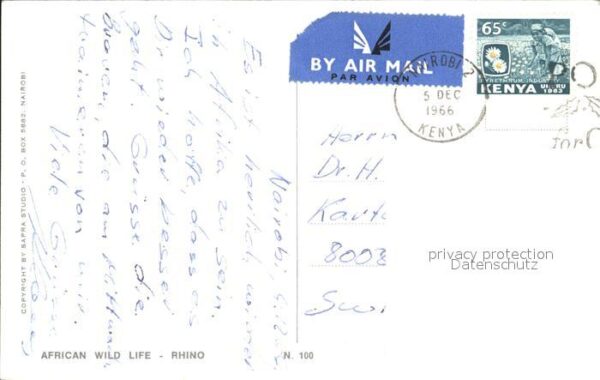 Nairobi, 4.12.66
Es ist herrlich wieder
in Afrika zu sein.
Ich hoffe, dass es
Dir wieder besser
geht. Grüsse die
die am Mittwoch
von mir.
Viele Grüsse
BY AIR MAIL
PAR AVION
65c
PYRETHRUM INDUSTRY
KENYA UHURU 1963
NAIROBI 2
5 DEC
1966
KENYA
Herrn
Dr. H.
8008
privacy protection
Datenschutz
COPYRIGHT BY SAPRA STUDIO - P. O. BOX 5882, NAIROBI
AFRICAN WILD LIFE - RHINO N. 100